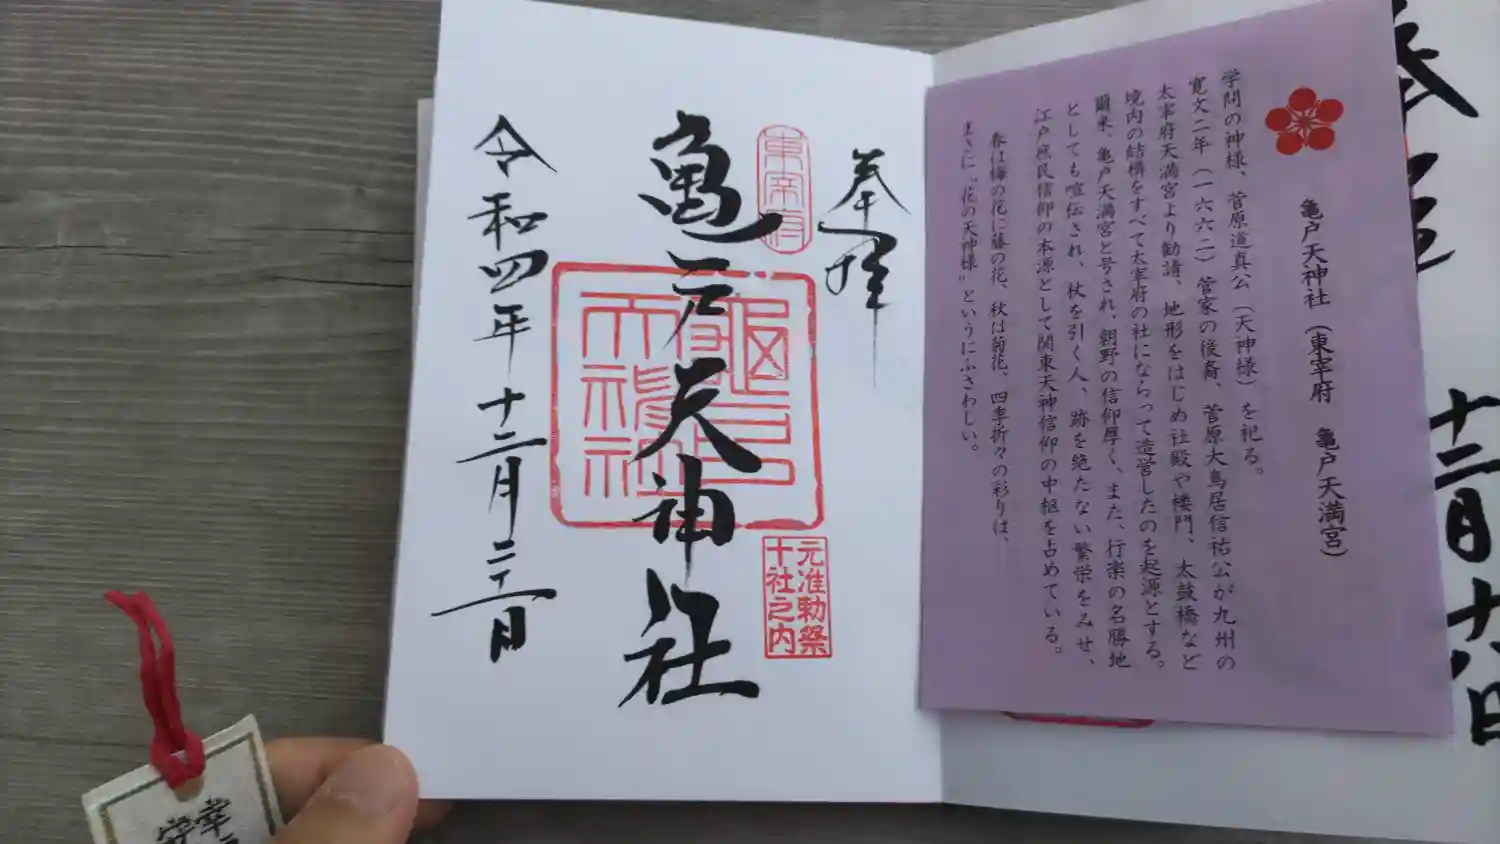 亀戸天神社(東宰府 亀戸天満宮)
学問の神様、菅原道真公(天神様)を祀る。
寛文二年(一六六二)菅家の後裔、菅原大鳥居信祐公が九州の
太宰府天満宮より勧請、地形をはじめ社殿や楼門、太鼓橋など
境内の結構をすべて太宰府の社にならって造営したのを起源とする。
爾来、亀戸天満宮と号され、朝野の信仰厚く、また、行楽の名勝地
としても喧伝され、杖を引く人、跡を絶たない繁栄をみせ、
江戸庶民信仰の本源として関東天神信仰の中枢を占めている。
春は梅の花に藤の花、秋は菊花、四季折々の彩りは、
まさに〝花の天神様〟というにふさわしい。
奉拝
東宰府
亀戸天神社
亀戸
天神社
元准勅祭
十社之内
令和四年十二月二十二日
奉
十二月十八日
幸
守